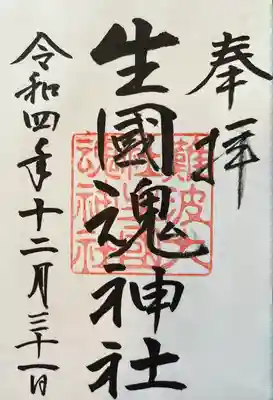 奉拝
生國魂神社
難波大社生國魂神社
令和四年十二月三十一日